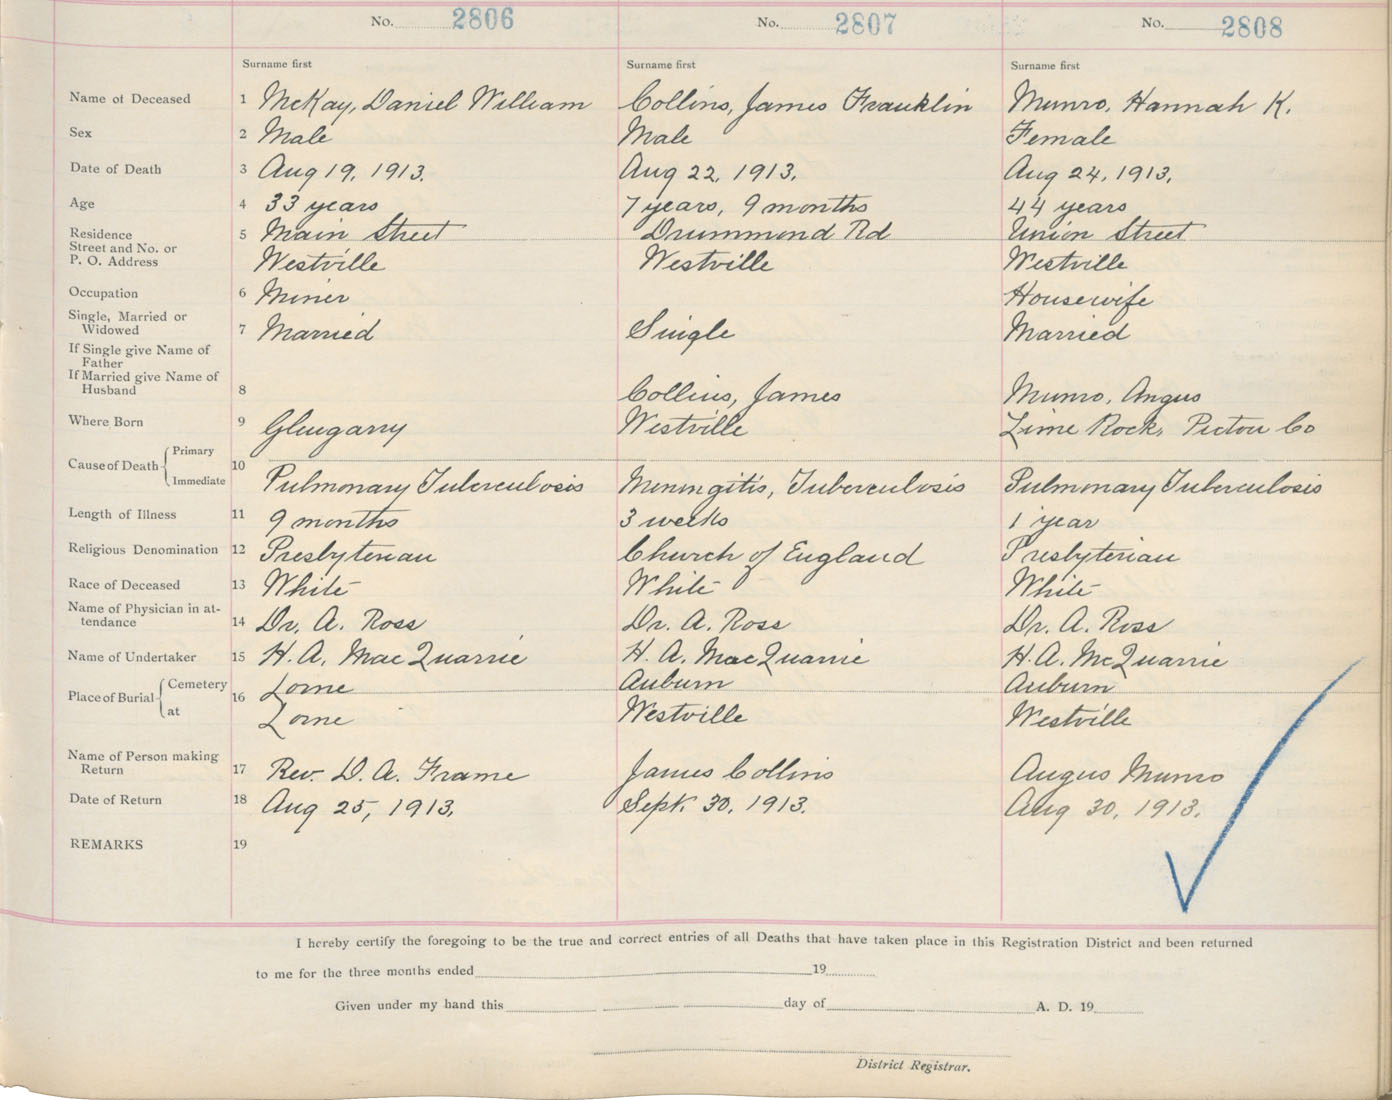 No. 2806 No. 2807 No. 2808
Surname first Surname first Surname first
Name of Deceased 1 McKay, Daniel William Collins, James Franklin Munro, Hannah K.
Sex 2 Male Male Female
Date of Death 3 Aug 19, 1913. Aug 22, 1913. Aug 24, 1913.
Age 4 33 years 7 years, 9 months 44 years
Residence 5 Main Street Drummond Rd Union Street
Street and No. or
P. O. Address Westville Westville Westville
Occupation 6 Miner Housewife
Single, Married or
Widowed 7 Married Single Married
If Single give Name of
Father
If Married give Name of
Husband 8 Collins, James Munro, Angus
Where Born 9 Glengarry Westville Lime Rock, Pictou Co
Cause of Death Primary 10
Immediate Pulmonary Tuberculosis Meningitis, Tuberculosis Pulmonary Tuberculosis
Length of Illness 11 9 months 3 weeks 1 year
Religious Denomination 12 Presbyterian Church of England Presbyterian
Race of Deceased 13 White White White
Name of Physician in at-
tendance 14 Dr. A. Ross Dr. A. Ross Dr. A. Ross
Name of Undertaker 15 H. A. MacQuarrie H. A. MacQuarrie H. A. McQuarrie
Place of Burial Cemetery 16 Lorne Auburn Auburn
at Lorne Westville Westville
Name of Person making
Return 17 Rev. D. A. Frame James Collins Angus Munro
Date of Return 18 Aug 25, 1913. Sept. 30, 1913. Aug 30, 1913.
REMARKS 19
I hereby certify the foregoing to be the true and correct entries of all Deaths that have taken place in this Registration District and been returned
to me for the three months ended 19
Given under my hand this day of A. D. 19
District Registrar.